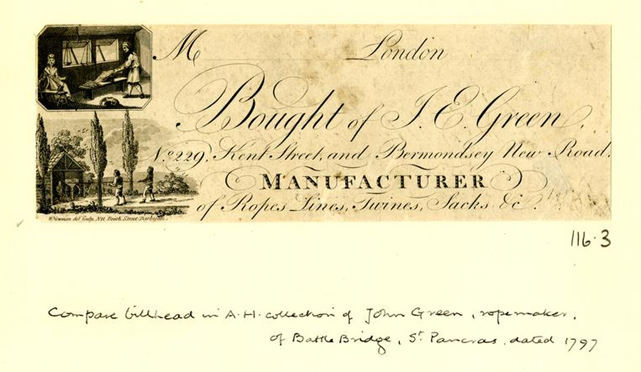 M London
Bought of J. E. Green,
No. 229, Kent Street, and Bermondsey New Road,
MANUFACTURER
of Ropes Lines, Twines, Sacks &c.
116.3
Compare billhead in A.H. collection of John Green, ropemaker,
of Battle Bridge, St. Pancras, dated 1797